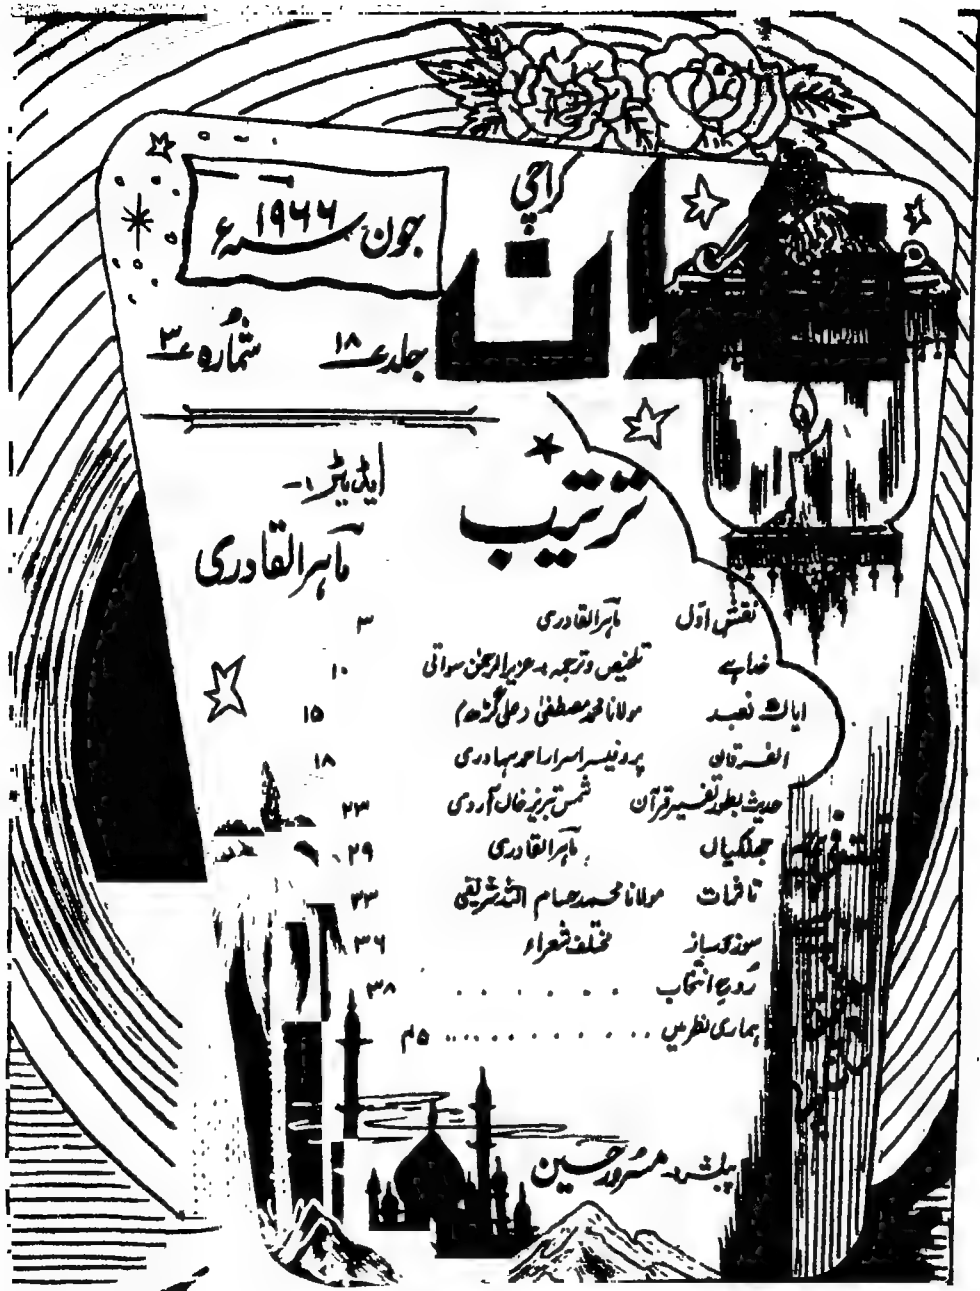 کراچی
جون ۱۹۶۶ء
جلد ۱۸ شمارہ ۳
ایڈیٹر:-
ماہر القادری
ترتیب
نقش اوّل ماہر القادری ۳
تلخیص و ترجمہ:- عزیز الرحمٰن سواتی ۱۰
ایاک نعبد مولانا محمد مصطفیٰ (علی گڑھ) ۱۵
الفرقان پروفیسر اسرار احمد سہاوری ۱۸
حدیث بطور تفسیر قرآن شمس تبریز خاں آروی ۲۳
جھلکیاں ماہر القادری ۲۹
تاثرات مولانا محمد حسام اللہ شریفی ۳۳
سوز و ساز مختلف شعراء ۳۶
رُوحِ انتخاب . . . . . . ۳۸
ہماری نظر میں . . . . . . . . . .
پبلشر:- مسرور حسین